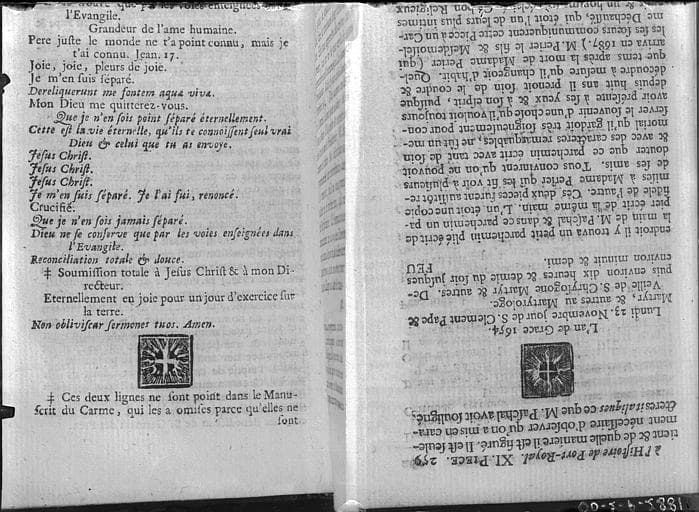 l'Evangile.
Grandeur de l'ame humaine.
Pere juste le monde ne t'a point connu, mais je
t'ai connu. Jean. 17.
Joie, joie, pleurs de joie.
Je m'en suis séparé.
Dereliquerunt me fontem aquæ vivæ.
Mon Dieu me quitterez-vous.
Que je n'en sois point séparé éternellement.
Cette est la vie éternelle, qu'ils te connoissent seul vrai
Dieu & celui que tu as envoye.
Jesus Christ.
Jesus Christ.
Jesus Christ.
Je m'en suis séparé. Je l'ai fui, renoncé.
Crucifié.
Que je n'en sois jamais séparé.
Dieu ne se conserve que par les voies enseignées dans
l'Evangile.
Reconciliation totale & douce.
‡ Soumission totale à Jesus Christ & à mon Di-
recteur.
Eternellement en joie pour un jour d'exercice sur
la terre.
Non obliviscar sermones tuos. Amen.
‡ Ces deux lignes ne sont point dans le Manu-
scrit du Carme, qui les a omises parce qu'elles ne
sont
à l'Histoire de Port-Royal. XI. PIECE. 259
tient & de quelle maniere il est figuré. Il est seule-
ment nécessaire d'observer qu'on a mis en cara-
cteres italiques ce que M. Paschal avoit souligné.
L'an de Grace 1654.
Lundi 23. Novembre jour de S. Clement Pape &
Martyr, & autres au Martyrologe.
Veille de S. Chrysogone Martyr & autres. De-
puis environ dix heures & demie du soir jusques
environ minuit & demi. FEU
endroit il y trouva un petit parchemin plié écrit de
la main de M. Paschal & dans ce parchemin un pa-
pier écrit de la même main. L'un étoit une copie
fidéle de l'autre. Ces deux pieces furent aussitôt re-
mises à Madame Perier qui les fit voir à plusieurs
de ses amis. Tous convinrent qu'on ne pouvoit
douter que ce parchemin écrit avec tant de soin
& avec des caracteres remarquables, ne fût un me-
morial qu'il gardoit très soigneusement pour con-
server le souvenir d'une chose qu'il vouloit toujours
avoir présente à ses yeux & à son esprit, puisque
depuis huit ans il prenoit soin de le coudre &
découdre à mesure qu'il changeoit d'habit. Quel-
que tems après la mort de Madame Perier (qui
arriva en 1687.) M. Perier le fils & Mesdemoisel-
les ses sœurs communiquerent cette Piece à un Car-
me Déchaussé qui étoit l'un de leurs plus intimes
& un homme Ce bon Religieux